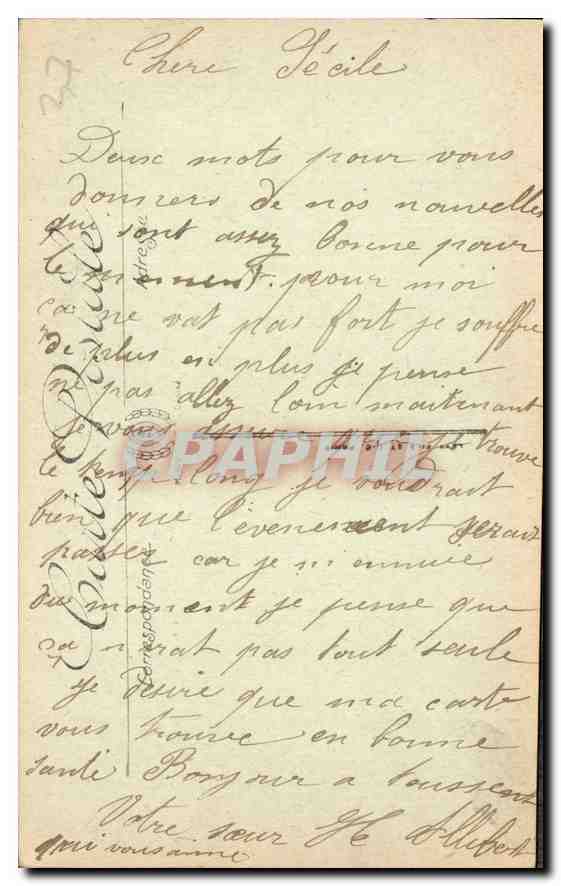 22
Chere Cécile
Deux mots pour vous
donners de nos nouvelles
qui sont assez bonne pour
le moment. pour moi
ca ne vat pas fort je souffre
de plus en plus je pense
ne pas allez loin maitenant
je vous assure que je trouve
le temps long je voudrait
bien que l'evenement serait
passer car je m'ennuie
du moment je pense que
sa n'irat pas tout seule
Je desire que ma carte
vous trouve en bonne
santé Bonjour a toussent
Votre sœur H
qui vous aime
Carte Postale
Adresse
Correspondance
CPAPHIL